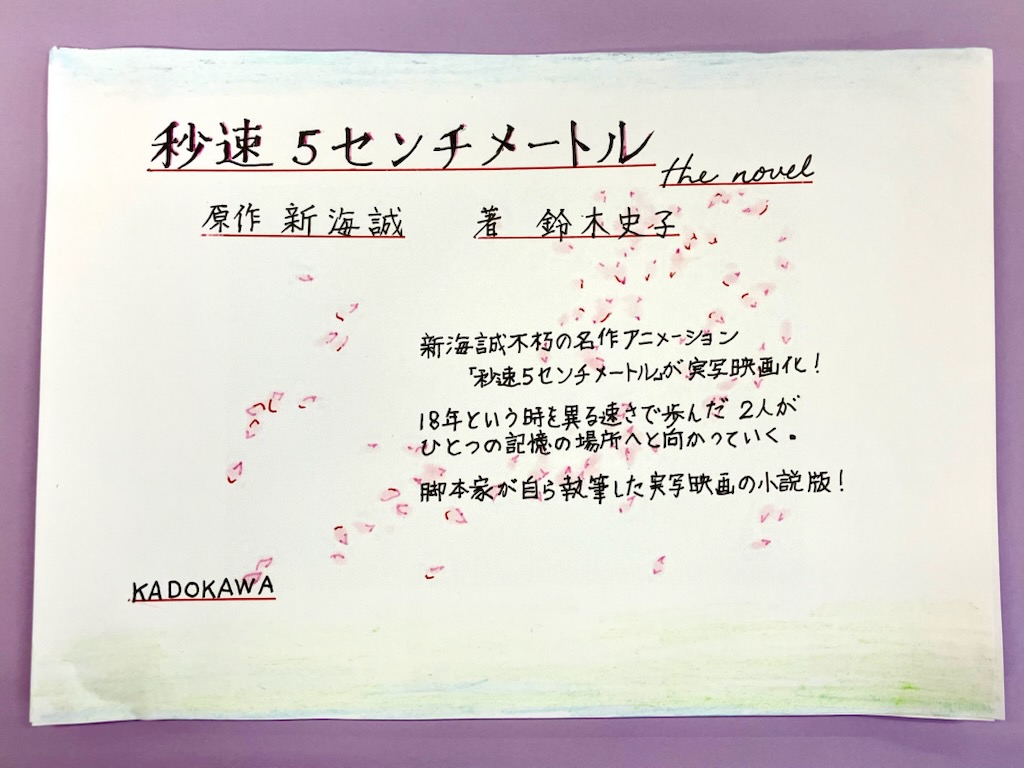 秒速5センチメートル
the novel
原作 新海誠 著 鈴木史子
新海誠不朽の名作アニメーション
「秒速5センチメートル」が実写映画化!
18年という時を異る速さで歩んだ2人が
ひとつの記憶の場所へと向かっていく。
脚本家が自ら執筆した実写映画の小説版!
KADOKAWA